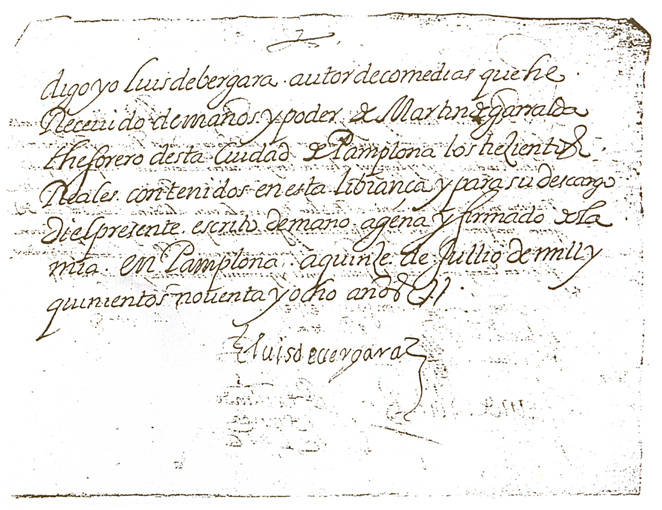 digo yo luis de bergara autor de comedias que he
Receuido de manos y poder de Martin de garralda
thesorero desta Ciudad de Pamplona los trezientos
Reales contenidos en esta libranca y para su descargo
di el presente escrito de mano agena y firmado de la
mia. en Pamplona a quinze de Jullio de mill y
quinientos nouenta y ocho años
luis de vergara